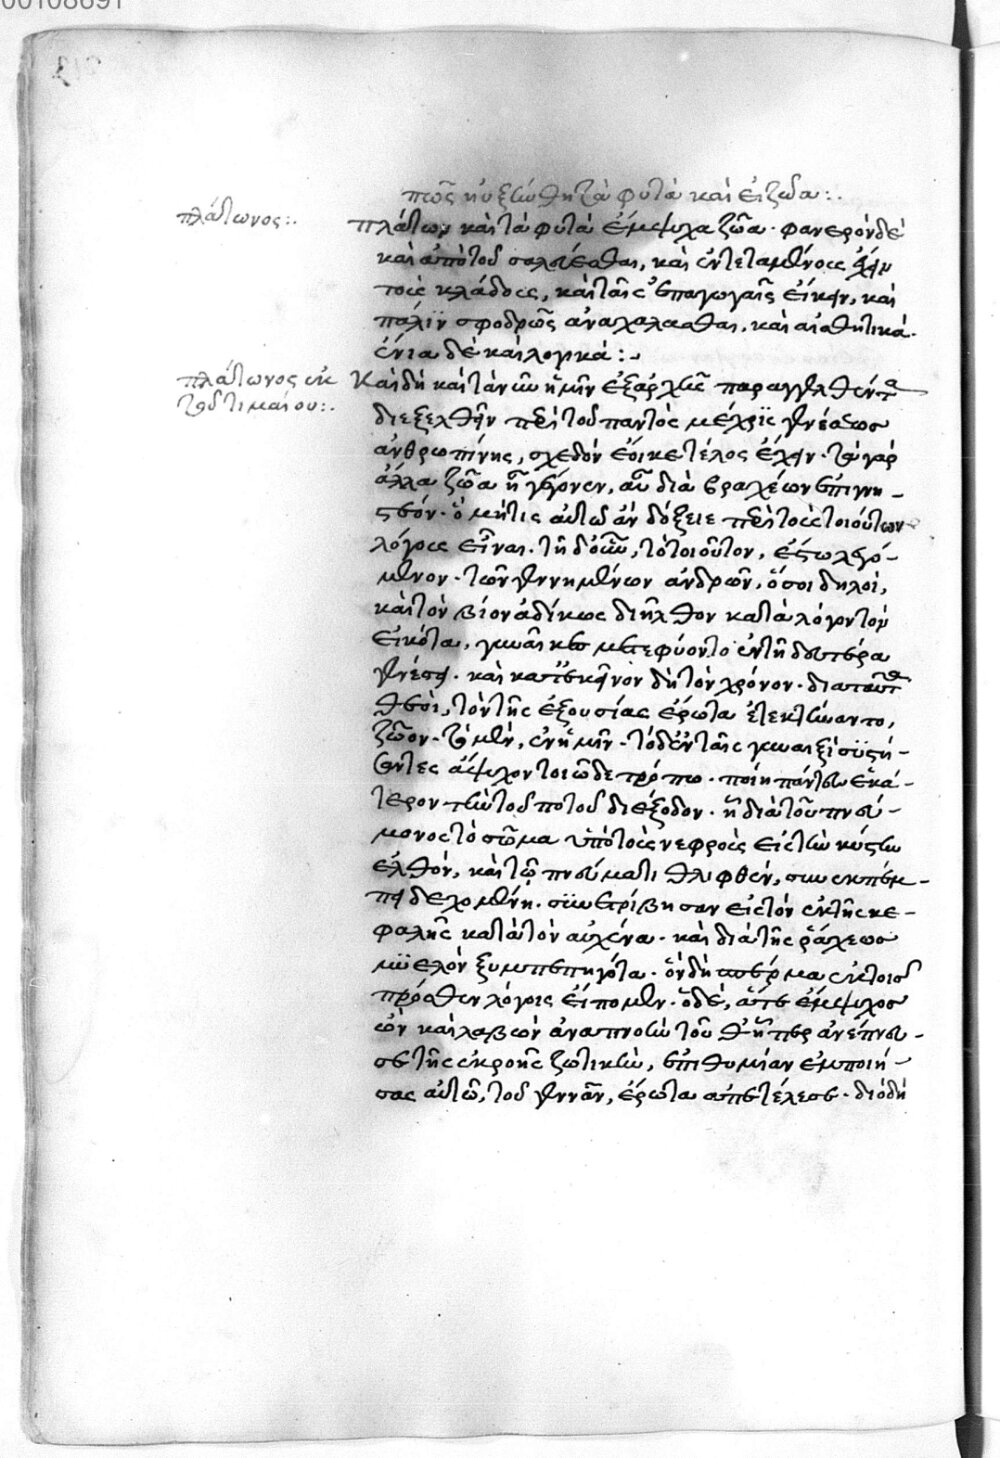 00108691
πῶς ηὐξήθη τὰ φυτὰ καὶ εἰ ζῶα:.
πλάτωνος:.
πλάτων καὶ τὰ φυτὰ ἔμψυχα ζῶα· φανερὸν δὲ
καὶ ἀπὸ τοῦ σαλεύεσθαι, καὶ ἐντεταμένους ἔχειν
τοὺς κλάδους, καὶ ταῖς ἐπαγωγαῖς εἴκειν, καὶ
πάλιν σφοδρῶς ἀναχαλᾶσθαι, καὶ αἰσθητικά·
ἔνια δὲ καὶ λογικά:
πλάτωνος ἐκ
τοῦ τιμαίου:.
Καὶ δὴ καὶ τὰ νῦν ἡμῖν ἐξ ἀρχῆς παραγγελθέντα
διεξελθεῖν περὶ τοῦ παντὸς μέχρις γενέσεως
ἀνθρωπίνης, σχεδὸν ἔοικε τέλος ἔχειν· τὰ γὰρ
ἄλλα ζῶα ᾗ γέγονεν, αὖ διὰ βραχέων ἐπιμνη-
στέον· ὃ μή τις αὐτῷ ἂν δόξειε περὶ τοὺς τοιούτων
λόγους εἶναι. τῇδ' οὖν, τὸ τοιοῦτον, ἔστω λεγό-
μενον· τῶν γεννημένων ἀνδρῶν, ὅσοι δειλοὶ,
καὶ τὸν βίον ἀδίκως διῆλθον κατὰ λόγον τὸν
εἰκότα, γυναῖκες μετεφύοντο ἐν τῇ δευτέρα
γενέσει· καὶ κατ' ἐκεῖνον δὴ τὸν χρόνον· διὰ ταῦτα
θεοὶ, τὸν τῆς ἐξουσίας ἔρωτα ἐτεκτήναντο,
ζῶον· τὸ μὲν, ἐν ἡμῖν· τὸ δ' ἐν ταῖς γυναιξὶ συστή-
σαντες ἄψυχον τοιῷδε τρόπω· ποίη πάντων ἑκά-
τερον τὴν τοῦ ποτοῦ διέξοδον· ᾗ διὰ τοῦ πνεύ-
μονος τὸ σῶμα ὑπὸ τοὺς νεφροὺς εἰς τὴν κύστιν
ἐλθὸν, καὶ τῷ πνεύματι θλιφθὲν, συνεκπέμ-
πει δεχομένη· συνέτρησαν εἰς τὸν ἐκ τῆς κε-
φαλῆς κατὰ τὸν αὐχένα· καὶ διὰ τῆς ῥάχεως
μυελὸν ξυμπεπηγότα· ὃν δὴ σπέρμα ἐν τοῖς
πρόσθεν λόγοις εἴπομεν· ὁ δὲ, ἅτε ἔμψυχος
ὢν καὶ λαβὼν ἀναπνοὴν τοῦθ' ᾗπερ ἀνέπνευ-
σε τῆς ἐκροῆς ζωτικὴν, ἐπιθυμίαν ἐμποιή-
σας αὐτῷ, τοῦ γεννᾶν, ἔρωτα ἀπετέλεσε· διὸ δὴ